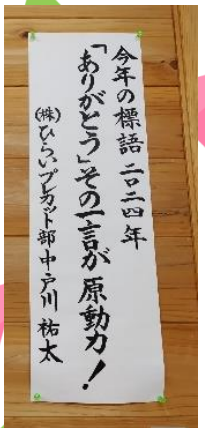 今年の標語 二〇二四年
「ありがとう」その一言が 原動力！
(株)ひらいプレカット部 中戸川 祐太